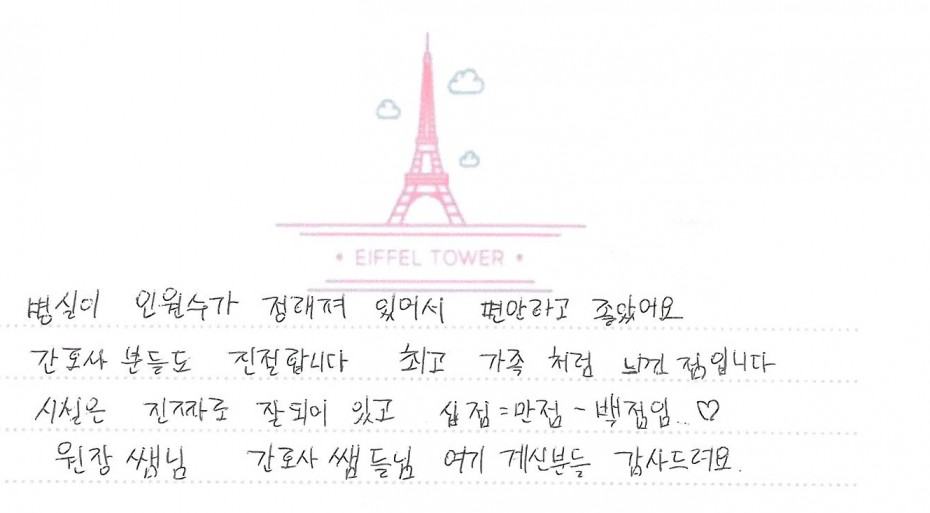 • EIFFEL TOWER •
병실이 인원수가 정해져 있어서 편안하고 좋았어요
간호사 분들도 친절합니다 최고 가족 처럼 느낀 점입니다
시설은 진짜로 잘되이 있고 십점=만점-백점임..♡
원장 쌤님 간호사 쌤들님 여기 계신분들 감사드려요.